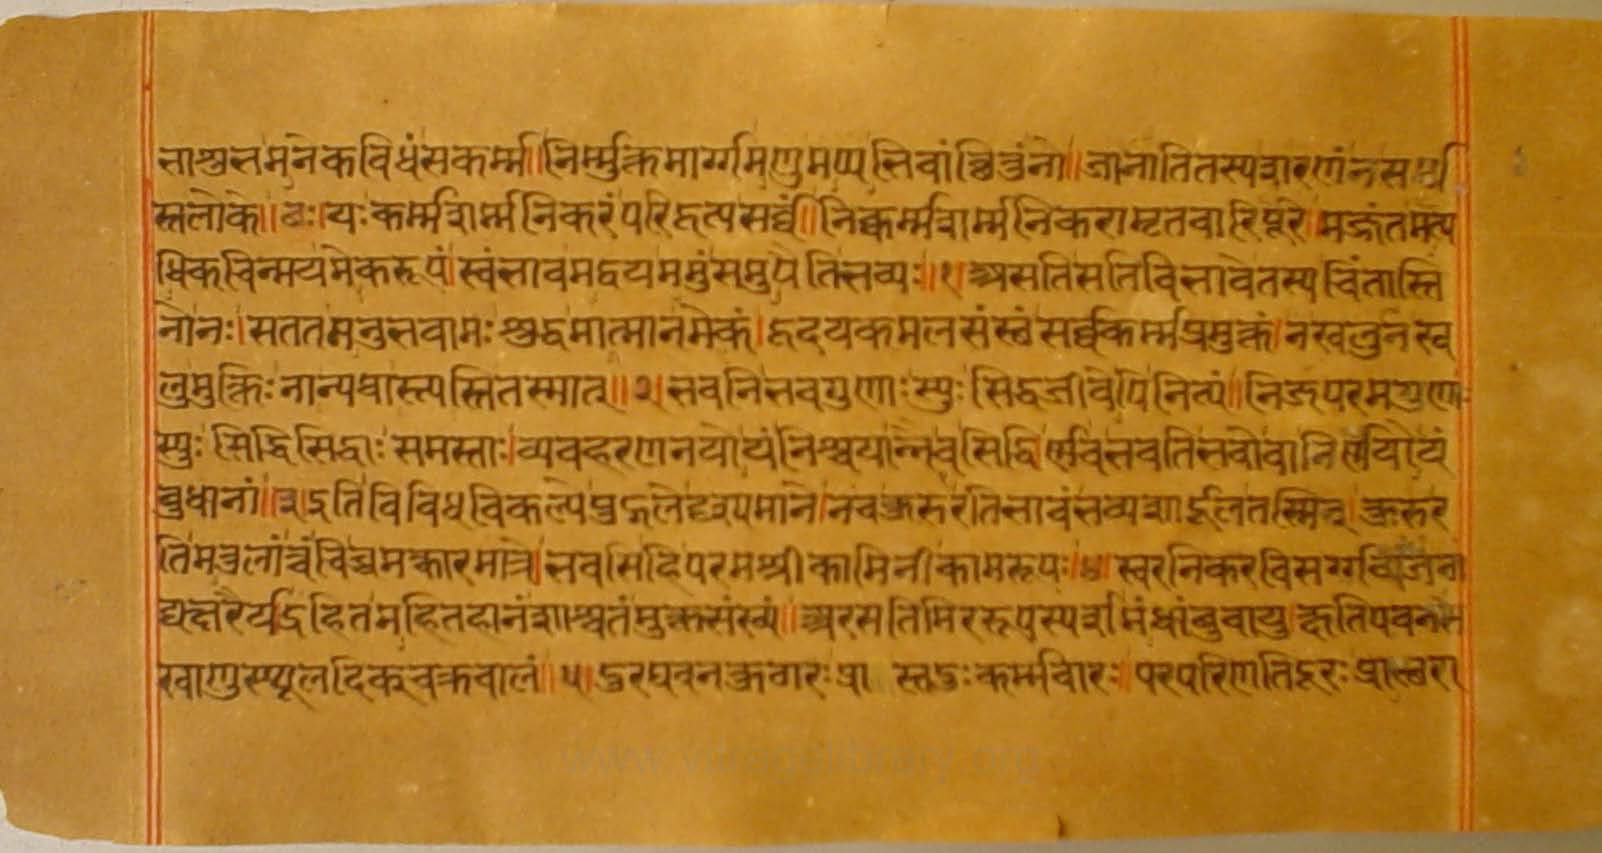 भाशुभमनेकविधंसकर्म्म॥निर्म्मुक्तमार्ग्गमणुमप्यभिवांछितुंनो॥जानातितस्यशरणंनसमर्थ
स्तिलोके॥८ः॥यःकर्म्मशर्म्मनिकरंपरिहृत्यसर्व्वं॥निष्कर्म्मशर्म्मनिकरामृतवारिपूरे।मज्जंतमत्य
धिकचिन्मयमेकरूपं।स्वंभावमद्वयममुंसमुपैतिभव्यः॥१॥असतिसतिविभावेतस्यचिंतास्ति
नोनः।सततमनुभवामःशुद्धमात्मानमेकं।हृदयकमलसंस्थंसर्व्वकर्म्मप्रमुक्तं।नखलुनख
लुमुक्तिःनान्यथास्त्यस्तितस्मात्॥२॥भवनिभवगुणाःस्युःसिद्धजीवेपिनित्यं॥निजपरमगुणाः
स्युःसिद्धिसिद्धाःसमस्ताः।व्यवहरणनयोयंनिश्चयान्नैवसिद्धिर्णचभवतिभवोवानिर्णयोयं
बुधानां॥३॥इतिविविधविकल्पेपुद्गलेदृश्यमाने।नचकुरुरतिभावंभव्यशार्दूलतस्मिन्।कुरुर
तिमतुलांत्वंचिच्चमत्कारमात्रे।भवसिहिपरमश्रीकामिनीकामरूपः॥४॥स्वरनिकरविसर्ग्गव्यंजना
द्यक्षरैर्यद्रहितमहितहीनंशाश्वतंमुक्तसंख्यं॥अरसतिमिररूपस्पर्शगंधांबुवायु।क्षितिपवनस
खाणुस्थूलदिक्चक्रवालं॥५॥दुरघवनकुठारःप्रा स्तदुःकर्मवारः॥परपरिणतिदूरःप्रास्तरा